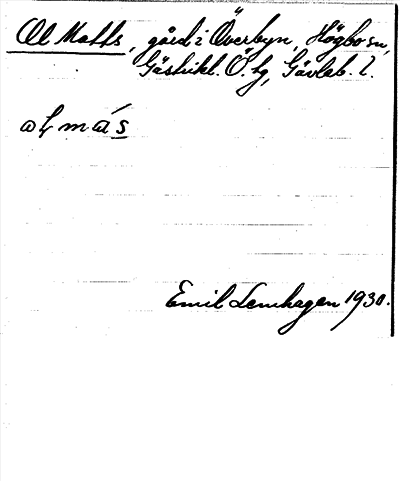 Ol Matts, gård i Överbyn, Högbo sn,
Gästrikl. Ö. tg, Gävleb. l.
aɫ más
Emil Lemhagen 1930.